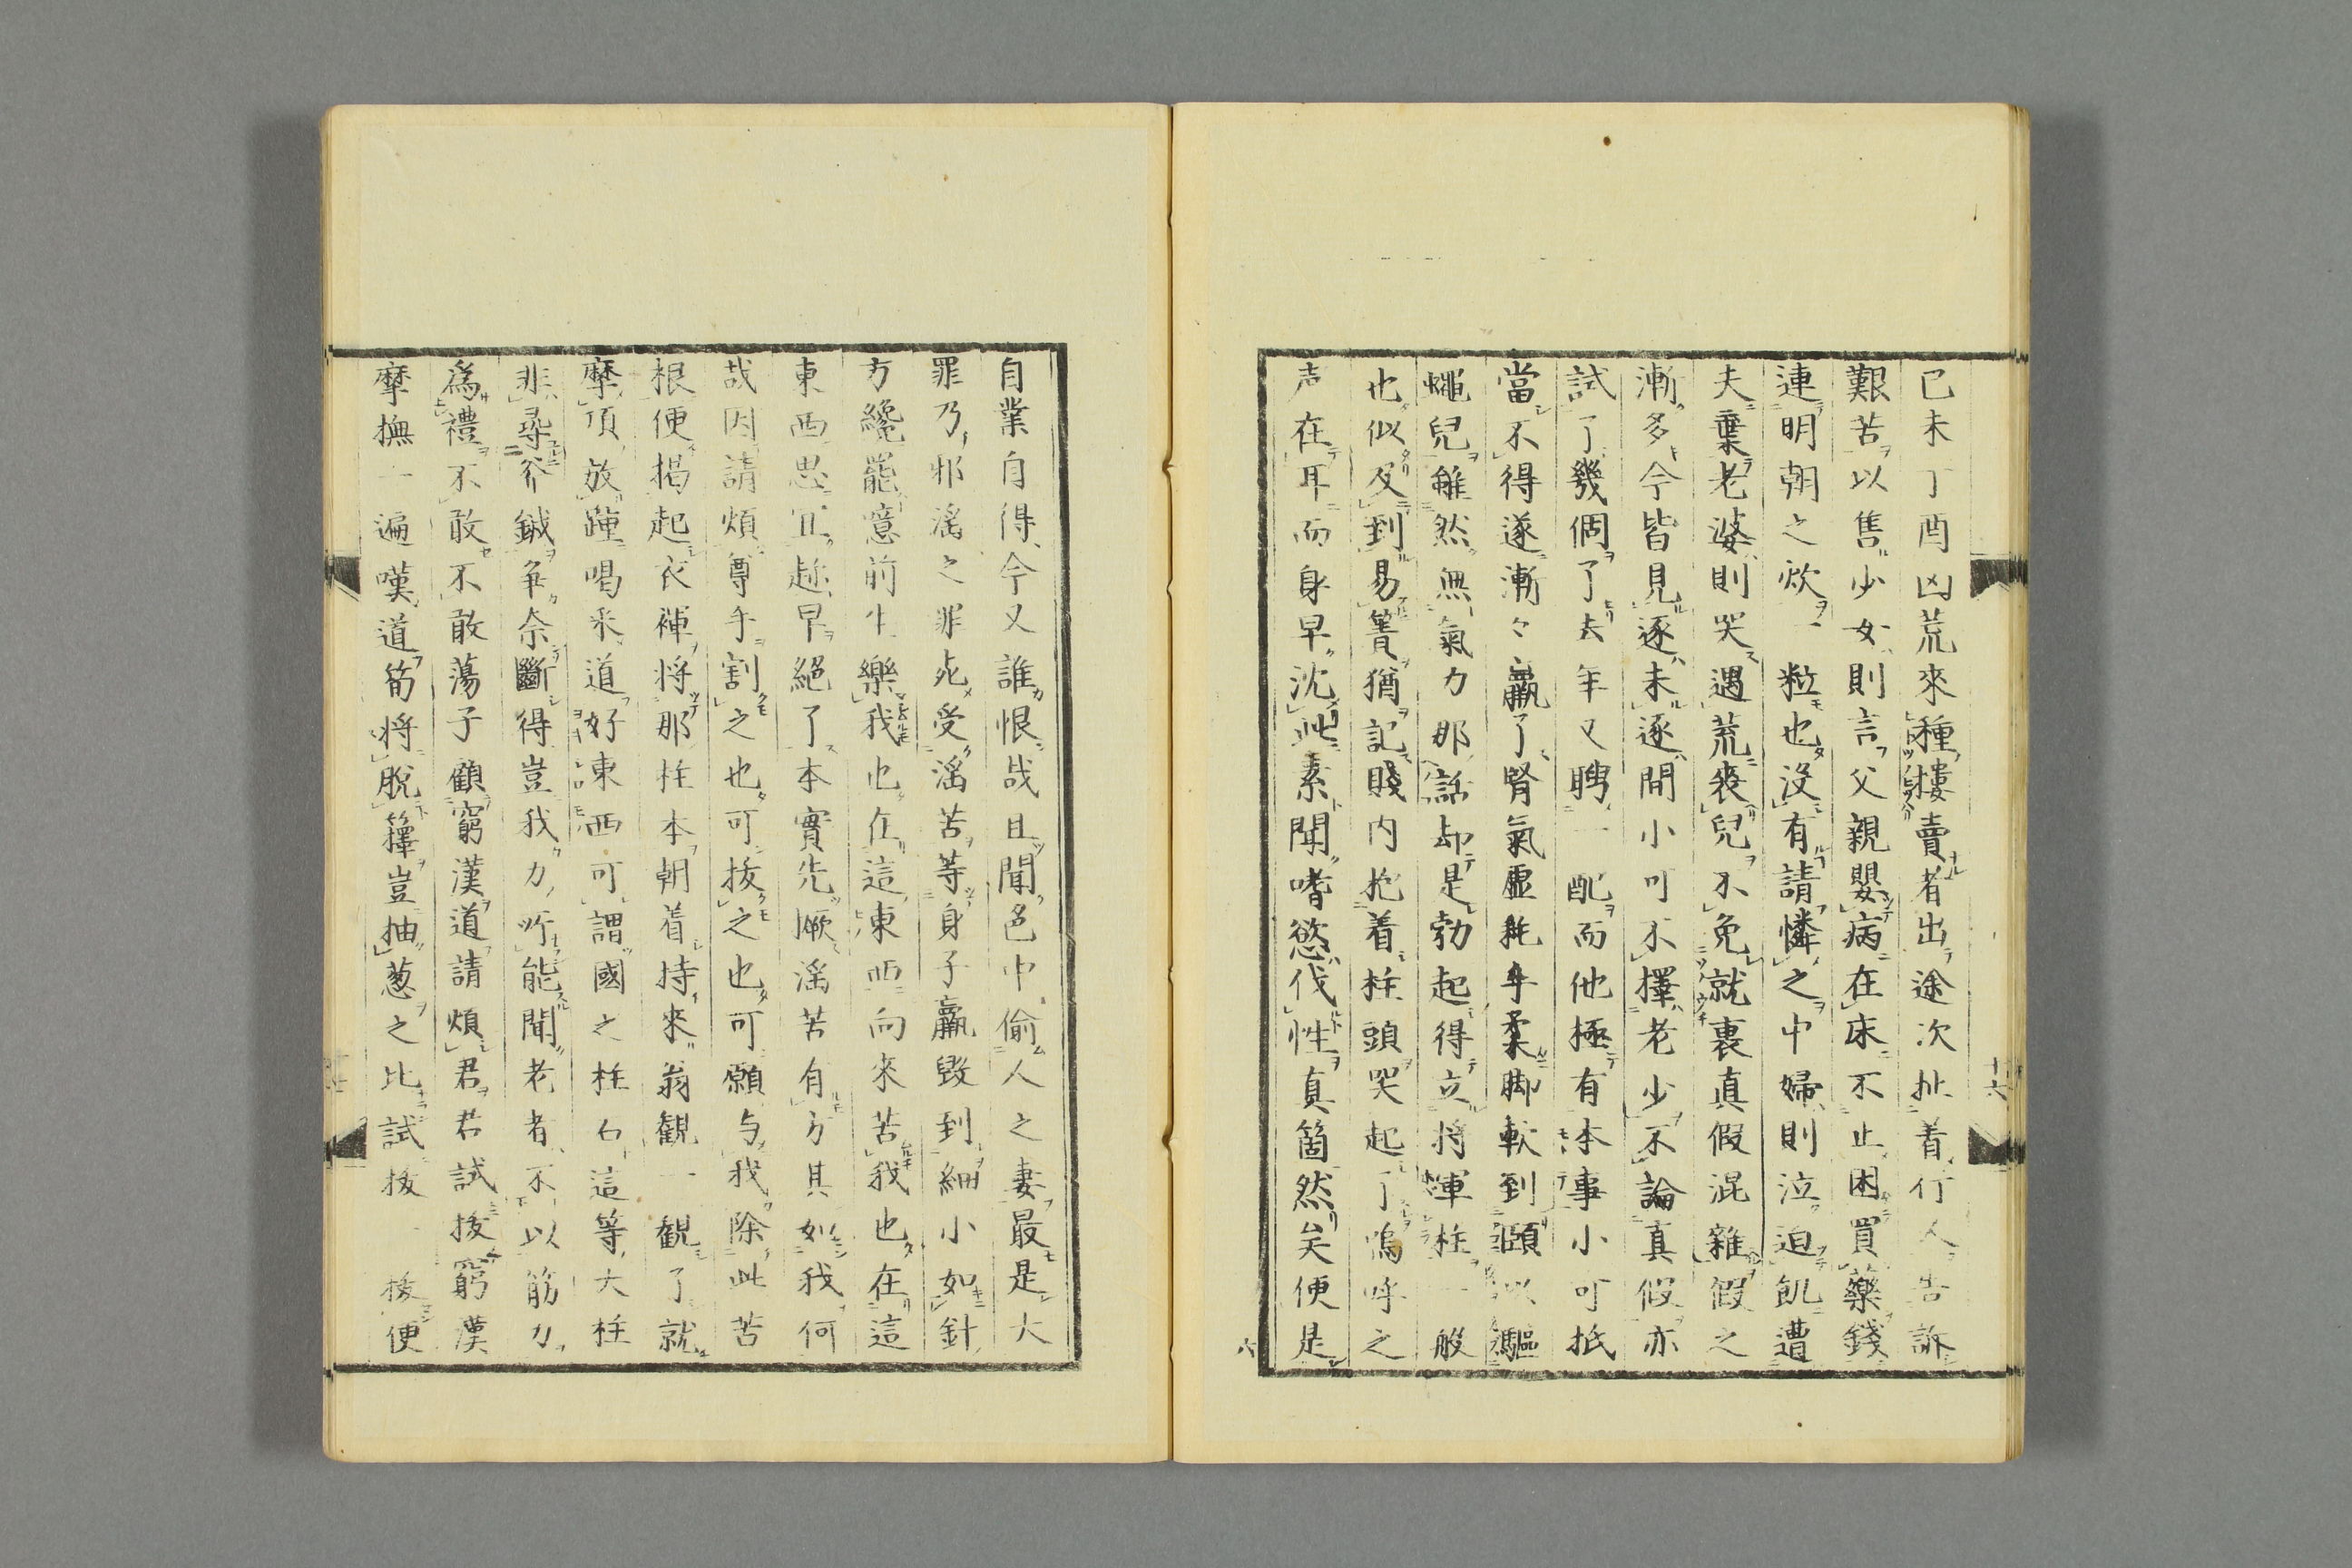 已未丁酉凶荒來種摟賣者出途次扯着行人告訴
艱苦以售少女則言父親嬰病在床不止困買藥錢
連明朝之炊一粒也没有請憐之中婦則泣迫飢遭
夫棄老婆則哭遇荒喪兒不免就裏真假混雜假之
漸多今皆見逐未逐間小可不擇老少不論真假亦
試了幾個了去年又聘一配而他極有本事小可抵
當不得遂漸々羸了腎氣虛耗手柔脚軟到頤以驅
蠅兒雖然無氣力那話却是勃起得立将軍柱一般
也似及到易簀猶記賤内抱着柱頭哭起了嗚呼之
声在耳而身早沈此素聞嗜慾伐性真箇然矣便是
自業自得今又誰恨哉且聞色中偷人之妻最是大
罪乃邪滛之罪死受滛苦等身子羸毀到細小如針
方纔罷噫前生樂我也在這東西向來苦我也在這
東西思宜趂早絕了本實先厥滛苦有方其如我何
哉因請煩尊手割之也可拔之也可願与我除此苦
根便揭起衣褌将那柱本朝着持來翁観一観了就
摩頂放踵喝釆道好東西可謂國之柱石這等大柱
非尋斧鉞争奈斷得豈我力所能聞老者不以筋力
為禮不敢不敢蕩子顧窮漢道請煩君君試拔窮漢
摩撫一遍嘆道筍将脫籜豈抽葱之比試拔一拔便
十六